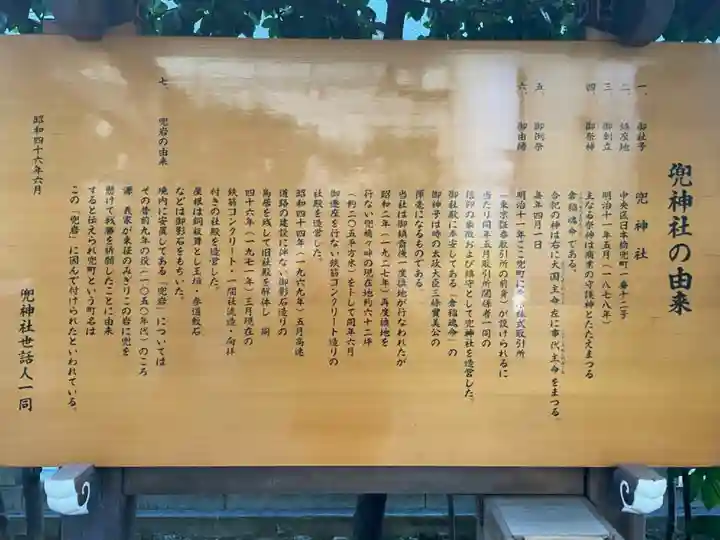 兜神社の由来
一、御社号 兜神社
二、鎮座地 中央区日本橋兜町一番十二号
三、御創立 明治十一年五月(一八七八)
四、御祭神 主なる祭神は商業の守護神とたたえまつる
倉稲魂命である。
合祀の神は右に大国主命 左に事代主命をまつる
五、御例祭 毎年四月一日
六、御由緒 明治十一年ここ兜町に 株式取引所
(東京証券取引所の前身)が設けられるに
当たり同年五月取引所関係者一同の
信仰の象徴および鎮守として兜神社を造営した。
御社殿に奉安してある「倉稲魂命」の
御神号は時の太政大臣三條實美公の
揮毫になるものである
当社は御鎮斎後一度換地が行なわれたが
昭和二年(一九二七年)再度換地を
行ない兜橋々畔の現在地約六十二坪
(約二〇五平方米)を卜して同年六月
御遷座を行ない鉄筋コンクリート造りの
社殿を造営した。
昭和四十四年(一九六九年)五月高速
道路の建設に伴ない御影石造りの
鳥居を残して旧社殿を解体し 同
四十六年(一九七一年)三月現在の
鉄筋コンクリート・一間社流造・向拝
付きの社殿を造営した。
屋根は銅板葺とし玉垣・参道敷石
などは御影石をもちいた。
七、兜岩の由来 境内に安置してある「兜岩」については
その昔前九年の役(一〇五〇年代)のころ
源 義家が東征のみぎりこの岩に兜を
懸けて戦勝を祈願したことに由来
すると伝えられ兜町という町名は
この「兜岩」に因んで付けられたといわれている。
昭和四十六年六月
兜神社世話人一同